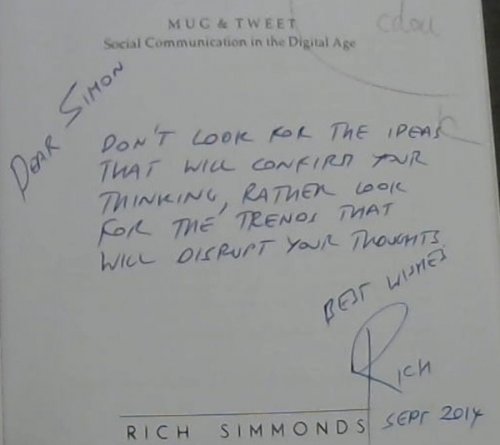 MUG & TWEET
Social Communication in the Digital Age
DEAR SIMON
DON'T LOOK FOR THE IDEAS
THAT WILL CONFIRM YOUR
THINKING, RATHER LOOK
FOR THE TRENDS THAT
WILL DISRUPT YOUR THOUGHTS
BEST WISHES
RICH
RICH SIMMONDS
SEPT 2014